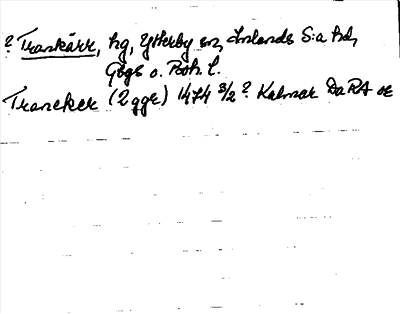 ? Trankärr, hg, Ytterby sn, Inlands S:a hd,
Gbgs o. Boh. l.
Trancker (2 ggr) 1474 3/2 ? Kalmar DaRA or